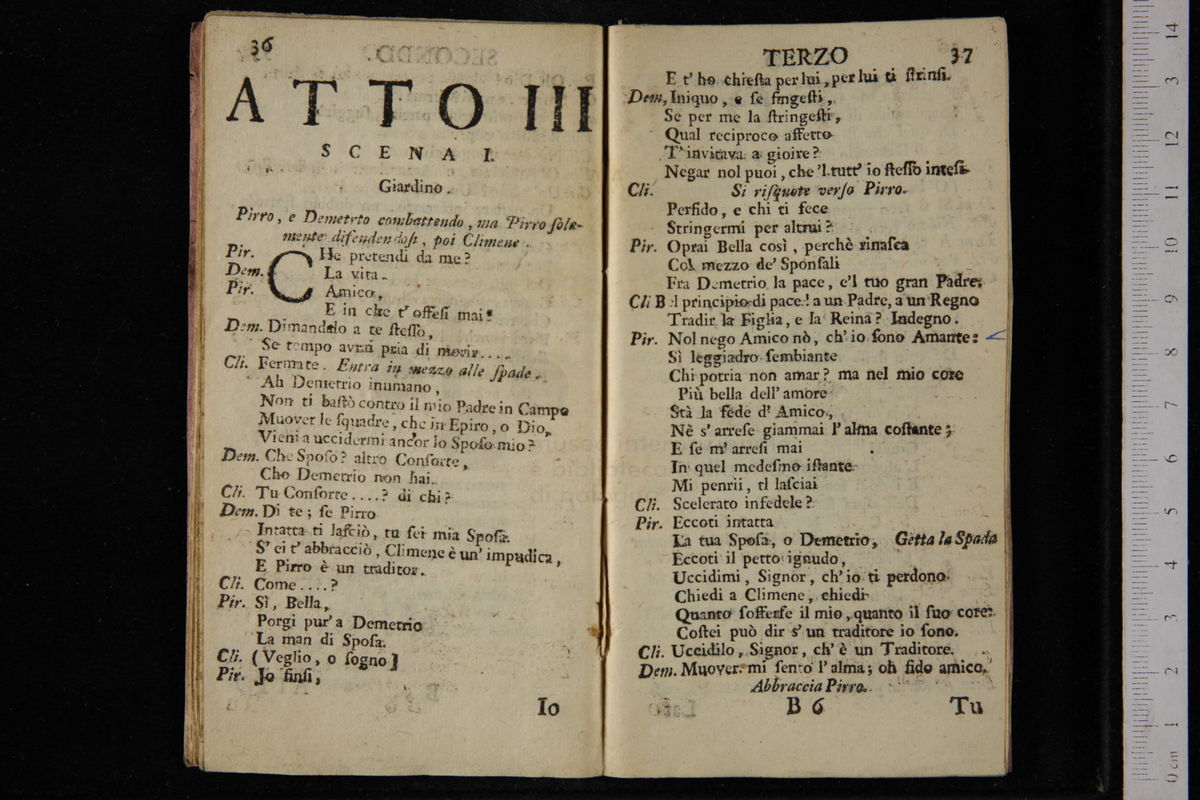 36
ATTO III
SCENA I.
Giardino.
Pirro, e Demetrto combattendo, ma Pirro ſola-
mente difendendoſi, poi Climene.
Pir. CHe pretendi da me?
Dem. La vita.
Pir. Amico,
E in che t' offeſi mai?
Dem. Dimandalo a te ſteſſo,
Se tempo avrai pria di morir....
Cli. Fermate. Entra in mezzo alle ſpade.
Ah Demetrio inumano,
Non ti baſtò contro il mio Padre in Campo
Muover le ſquadre, che in Epiro, o Dio,
Vieni a uccidermi ancor lo Spoſo mio?
Dem. Che Spoſo? altro Conſorte,
Cho Demetrio non hai.
Cli. Tu Conſorte....? di chi?
Dem. Di te; ſe Pirro
Intatta ti laſciò, tu ſei mia Spoſa.
S' ei t' abbracciò, Climene è un' impudica,
E Pirro è un traditor.
Cli. Come....?
Pir. Sì, Bella,
Porgi pur' a Demetrio
La man di Spoſa.
Cli. (Veglio, o ſogno)
Pir. Jo finſi,
Io
TERZO 37
E t' ho chieſta per lui, per lui ti ſtrinſi.
Dem, Iniquo, e ſe fingeſti,
Se per me la ſtringeſti,
Qual reciproco affetto
T' invitava a gioire?
Negar nol puoi, che 'l tutt' io ſteſſo inteſi.
Cli. Si riſquote verſo Pirro.
Perfido, e chi ti fece
Stringermi per altrui?
Pir. Oprai Bella così, perchè rinaſca
Col mezzo de' Sponſali
Fra Demetrio la pace, e'l tuo gran Padre.
Cli B :l principio di pace! a un Padre, a un Regno
Tradir la Figlia, e la Reina? Indegno.
Pir. Nol nego Amico nò, ch' io ſono Amante:
Sì leggiadro ſembiante
Chi potria non amar? ma nel mio core
Più bella dell' amore
Stà la fede d' Amico,
Nè s' arreſe giammai l' alma coſtante;
E ſe m' arreſi mai
In quel medeſino iſtante
Mi penrii, tl laſciai
Cli. Scelerato infedele?
Pir. Eccoti intatta
La tua Spoſa, o Demetrio, Getta la Spada
Eccoti il petto ignudo,
Uccidimi, Signor, ch' io ti perdono.
Chiedi a Climene, chiedi
Quanto ſofferſe il mio, quanto il ſuo core.
Coſtei può dir s' un traditore io ſono.
Cli. Uccidilo, Signor, ch' è un Traditore.
Dem. Muover mi ſento l' alma; oh fido amico.
Abbraccia Pirro.
B 6 Tu